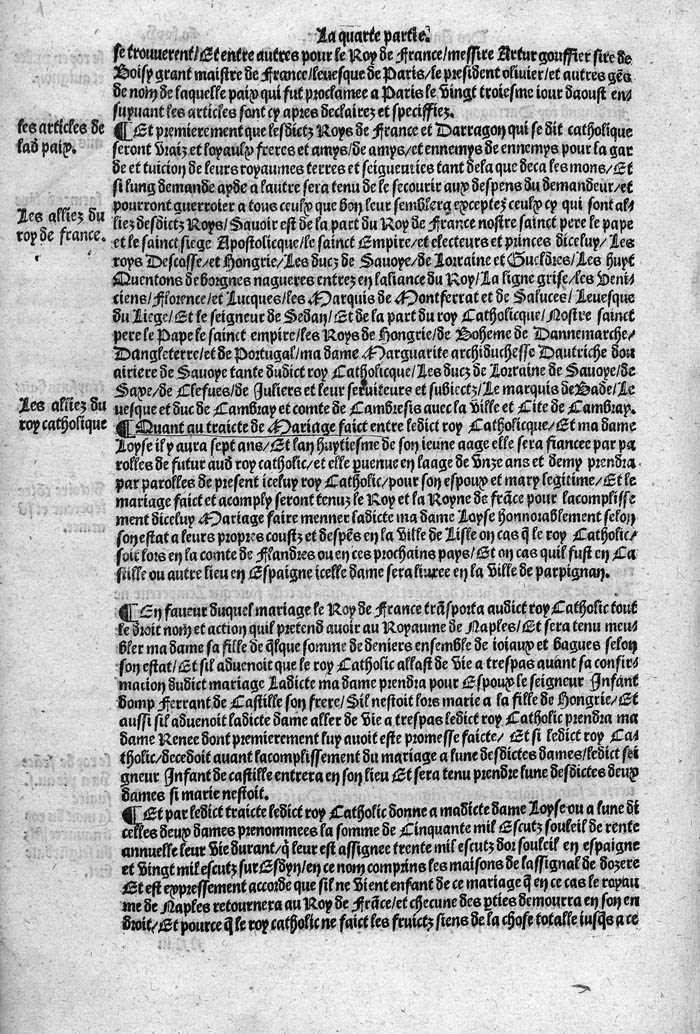 La quarte partie.
se trouverent/Et entre autres pour le Roy de France/messire Artur gouffier sire de
Boisy grant maistre de France/levesque de Paris/le president olivier/et autres gẽs
de nom de laquelle paix qui fut proclamee a Paris le vingt troiesme iour daoust en/
suyvant les articles sont cy apres declairez et speciffiez.
les articles de
lad paix.
¶ Et premierement que lesdictz Roys de France et Darragon qui se dit catholique
seront vraiz et loyaulx freres et amys/de amys/et ennemys de ennemys pour la gar
de et tuicion de leurs royaumes terres et seigneuries tant dela que deca les mons/Et
si lung demande ayde a lautre sera tenu de le secourir aux despens du demandeur/et
pourront guerroier a tous ceulx que bon leur semblera exceptez ceulx cy qui sont al/
Les alliez du
roy de france.
liez desdictz Roys/Savoir est de la part du Roy de France nostre sainct pere le pape
et le sainct siege Apostolicque/le sainct Empire/et electeurs et princes diceluy/Les
roys Descosse/et Hongrie/Les ducz de Savoye/de Lorraine et Gueldres/Les huyt
Quentons de borgnes nagueres entrez en laliance du Roy/La ligne grise/les Veni/
ciens/Florence/et Lucques/les Marquis de Montferrat et de Saluces/Levesque
du Liege/Et le seigneur de Sedan/Et de la part du roy Catholicque/Nostre sainct
pere le Pape le sainct empire/les Roys de Hongrie/de Boheme de Dannemarche/
Dangleterre/et de Portugal/ma dame Marguarite archiduchesse Dautriche dou
airiere de Savoye tante dudict roy Catholicque/Les ducz de Lorraine de Savoye/de
Saxe/de Clefues/de Juliers et leur serviteurs et subiectz/Le marquis de Bade/Le
Les alliez du
roy catholique
vesque et duc de Cambray et comte de Cambresis avec la ville et Cite de Cambray.
¶ Quant au traicte de Mariage faict entre ledict roy Catholicque/Et ma dame
Loyse il y aura sept ans/Et lan huytiesme de son ieune aage elle sera fiancee par pa
rolles de futur aud roy catholic/et elle ꝑvenue en laage de vnze ans et demy prendra
par parolles de present iceluy roy Catholic/pour son espoux et mary legitime/Et le
mariage faict et acomply seront tenuz le Roy et la Royne de frãce pour lacomplisse
ment diceluy Mariage faire menner ladicte ma dame Loyse honnorablement selon
son estat a leurs propres coustz et despẽs en la ville de Lisle ou cas q̃ le roy Catholic/
soit lors en la comte de Flandres ou en ces prochains pays/Et ou cas quil fust en Ca
stille ou autre lieu en Espaigne icelle dame sera livree en la ville de parpignan.
¶ En faveur duquel mariage le Roy de France trãsporta audict roy Catholic tout
le droit nom et action quil pretend avoir au Royaume de Naples/Et sera tenu meu/
bler ma dame sa fille de q̃lque somme de deniers ensemble de ioiaux et bagues selon
son estat/Et sil advenoit que le roy Catholic allast de vie a trespas avant sa confir/
macion dudict mariage Ladicte ma dame prendra pour Espoux le seigneur Infant
domp Ferrant de Castille son frere/Sil nestoit lors marie a la fille de Hongrie/Et
aussi sil advenoit ladicte dame aller de vie a trespas ledict roy Catholic prendra ma
dame Renee dont premierement luy avoit este promesse faicte/ Et si ledict roy Ca/
tholic/decedoit avant lacomplissement du mariage a lune desdictes dames/ledict sei
gneur Infant de castille entrera en son lieu Et sera tenu prendre lune desdictes deux
dames si marie nestoit.
¶ Et par ledict traicte ledict roy Catholic donne a madicte dame Loyse ou a lune di
celles deux dames prenommees la somme de Cinquante mil Escutz souleil de rente
annuelle leur vie durant/q̃ leur est assignee trente mil escutz dor souleil en espaigne
et vingt mil escutz sur Esdyn/en ce nom comprins les maisons de lassignal de dozere
Et est expressement accorde que sil ne vient enfant de ce mariage q̃ en ce cas le royau
me de Naples retournera au Roy de Frãce/et checune des ꝑties demourra en son en
droit/Et pource q̃ le roy catholic ne faict les fruictz siens de la chose totalle iusq̃s a ce